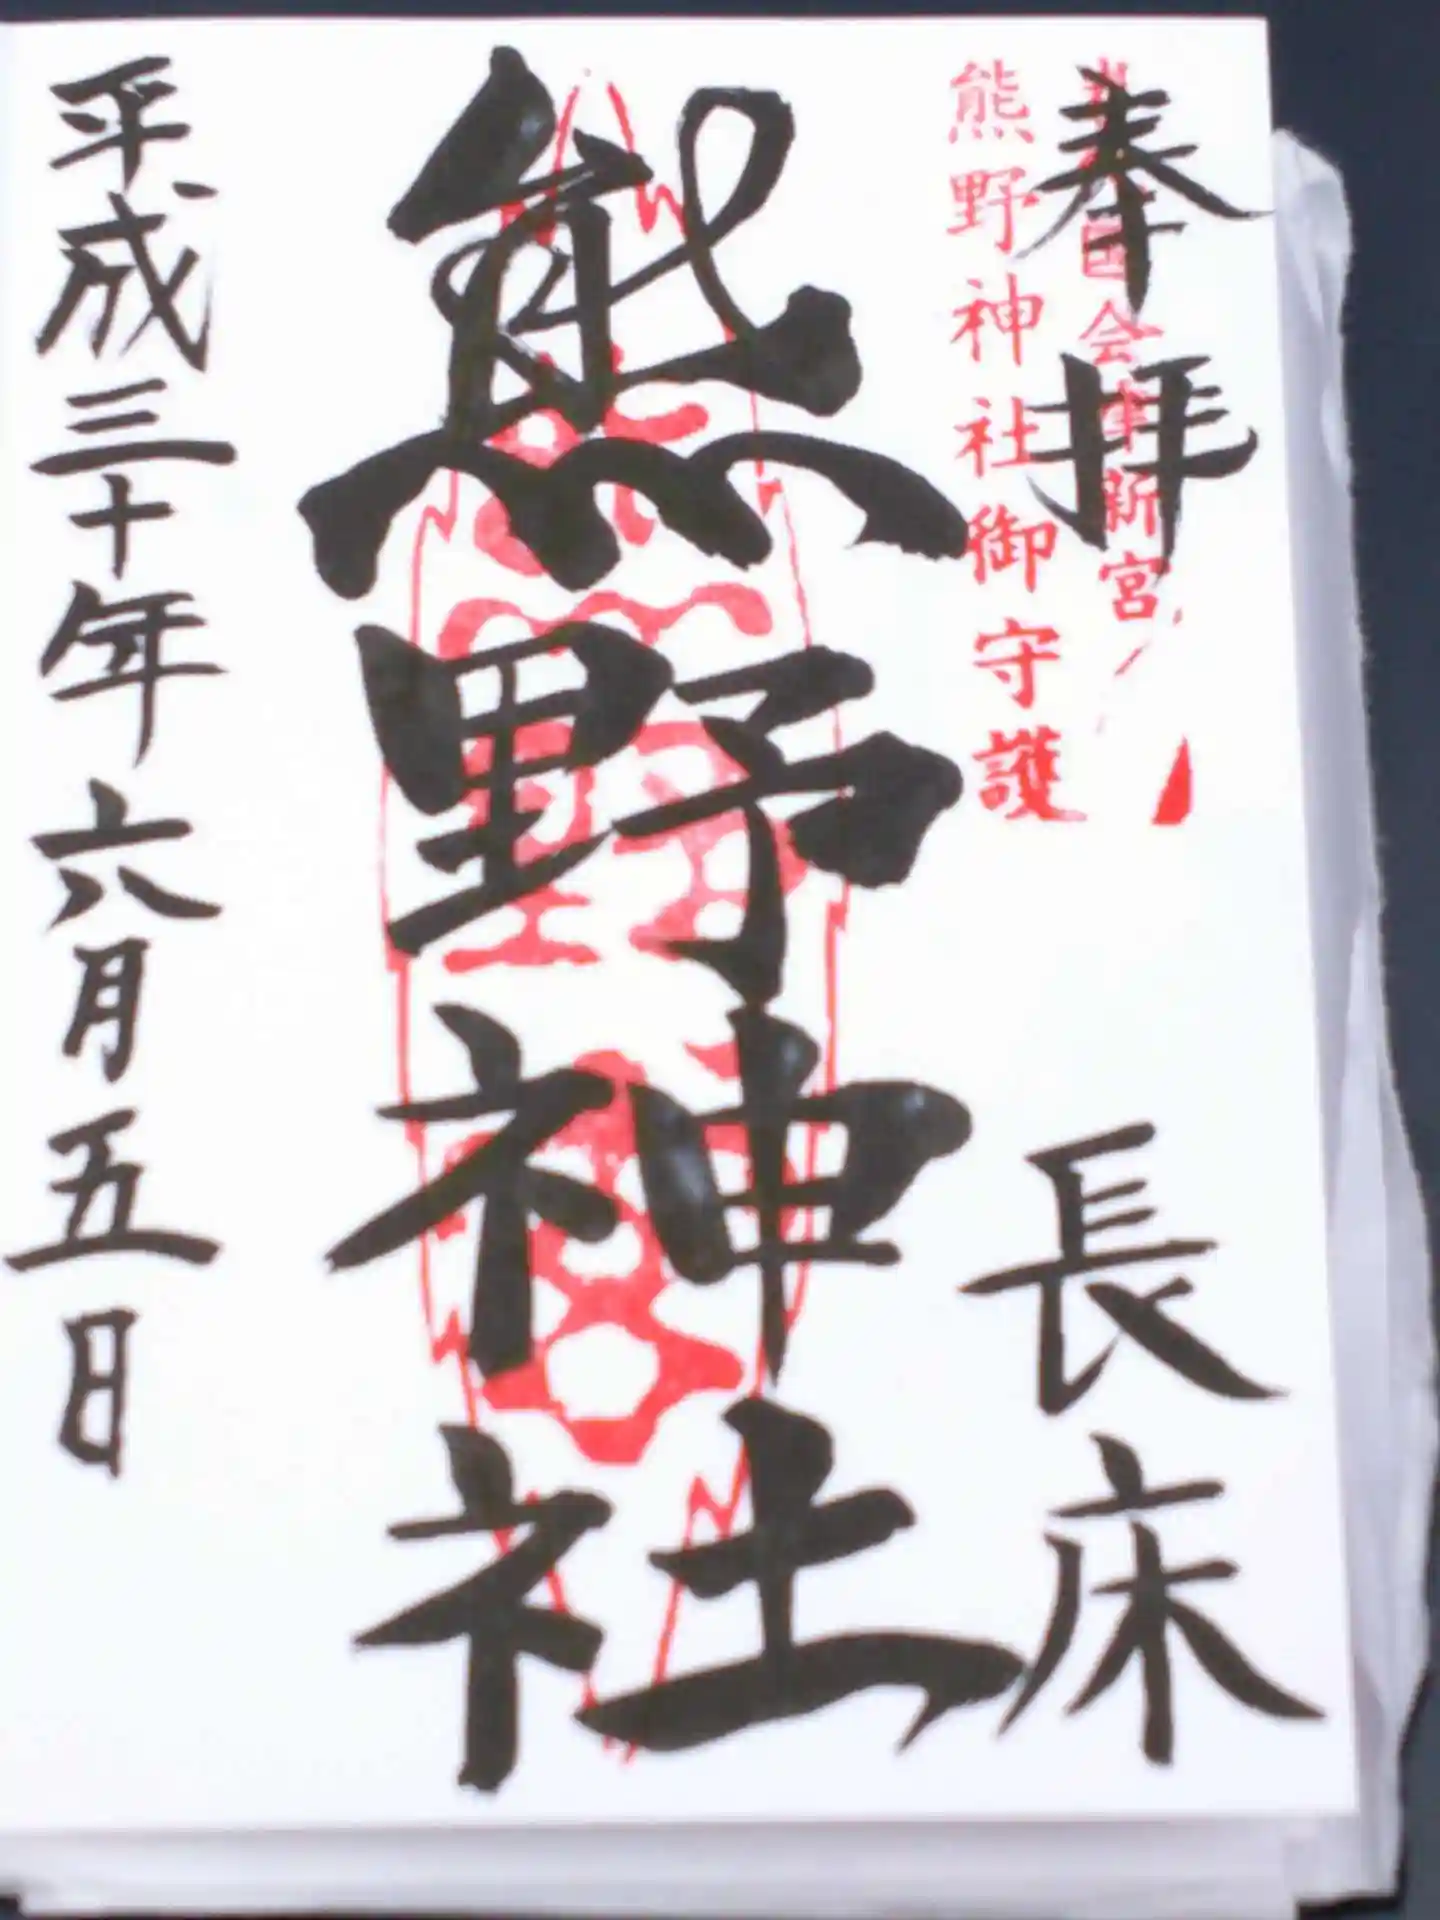 奉拝
長床
会津新宮
熊野神社御守護
熊野神社
平成三十年六月五日